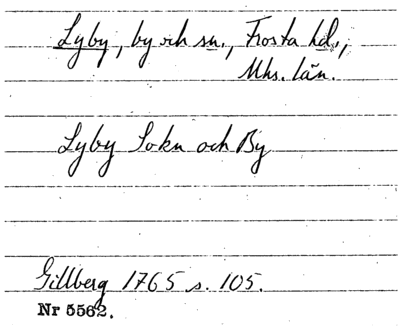 Lyby, by och sn., Frosta hd.,
Mhs. län.
Lyby Sokn och By
Gillberg 1765 s. 105.
Nr 5562.